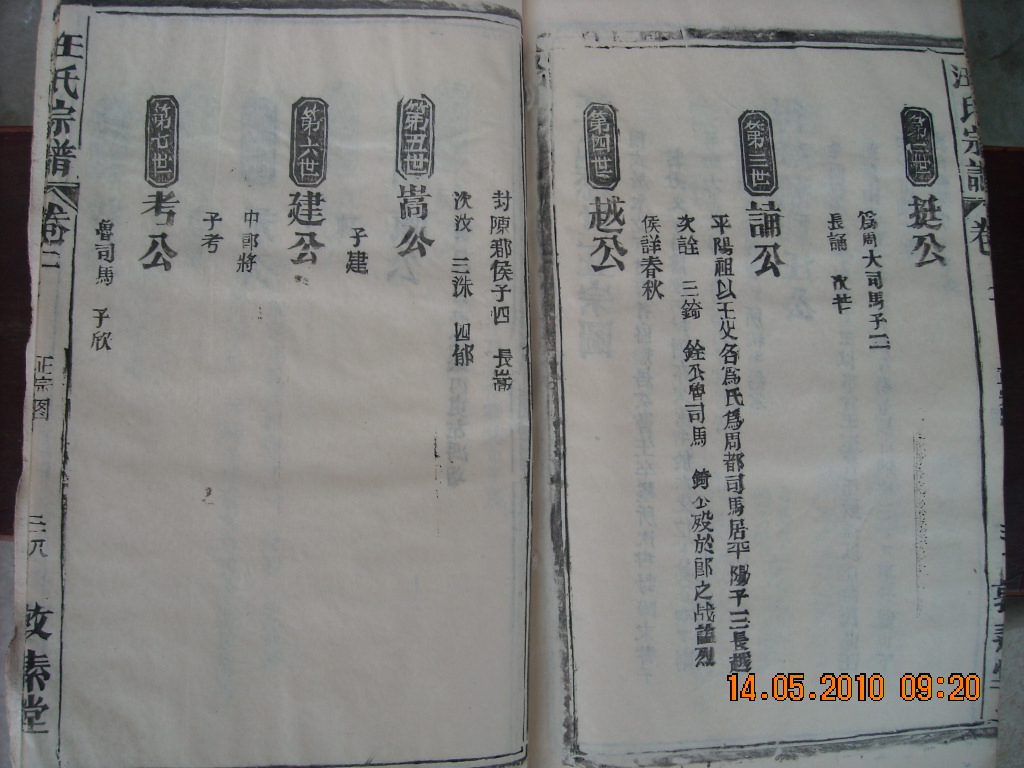 汪氏宗譜
卷
第二世
挺公
為周大司馬子二
長誦 次芒
第三世
誦公
平陽祖以王父名為氏為周都司馬居平陽子三長越
次詮 三錡 銓公魯司馬 錡公殁於郎之战
侯詳春秋
第四世
越公
封陳郡侯子四 長嵩
次汶 三洙 四郁
第五世
嵩公
子建
第六世
建公
中郎將
子考
第七世
考公
魯司馬 子欣
汪氏宗譜
卷二
正宗图
堂
14.05.2010 09:20